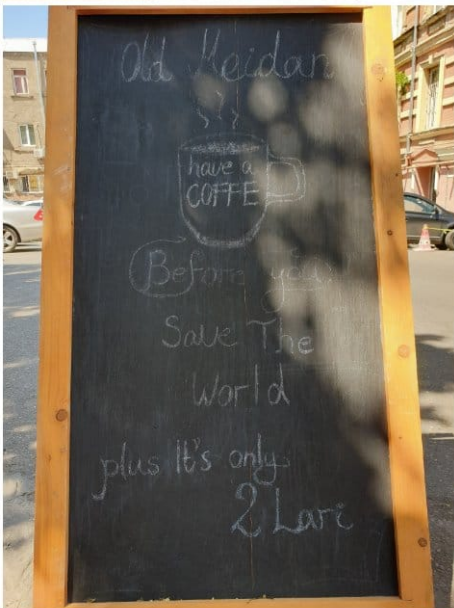 Old Meidan
have a
COFFE
Before you
Save The
World
plus It's only
2 Lari